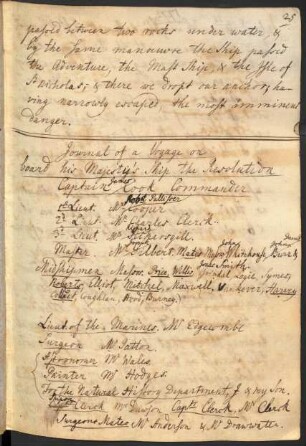 25
passed between two rocks under water, &
by the same manoeuvre the Ship passed
the Adventure, the Mast Ship, & the Isle of
St Nicholas; & there we dropt our anchor; ha-
ving narrowly escaped the most imminent
danger.
Journal of a Voyage on
board his Majesty's Ship the Resolution
Captain James Cook Commander
1st Lieut. Robt Pallisser Cooper
2d Lieut. Mr Charles Clerk
3d Lieut. Mr Pickersgill
Master Mr Gilbert, Mates Whitehouse, Burr &
Midshipmen Messrs Price, Willis
Roberts, Eliot, Mitchel, Maxwell, Vancover, Harvey
Loughton, Hood, Burney
Lieut. of the Marines. Mr Edgecombe
Surgeon Mr Patton
Astronomer Mr Wales
Painter Mr Hodges.
For the Natural History Department, I & my Son.
Clerk Mr Dawson Capts Clerk. Mr Clerk
Surgeons Mates Mr Anderson & Mr Drawwater.